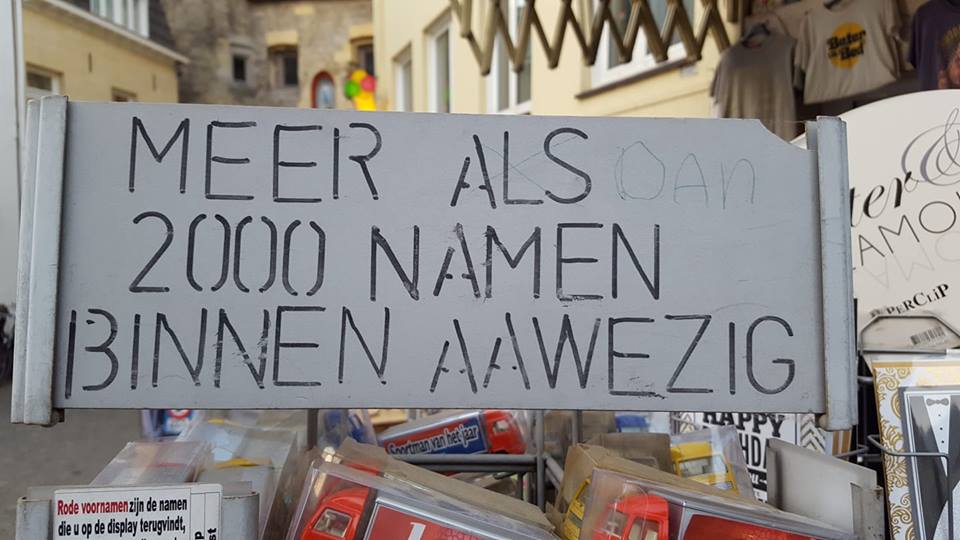 MEER ALS DAN
2000 NAMEN
BINNEN AAWEZIG
Better
Bed
PERCLIP
Sportman van het jaar
HAPPY
Rode voornamen zijn de namen
die u op de display terugvindt,